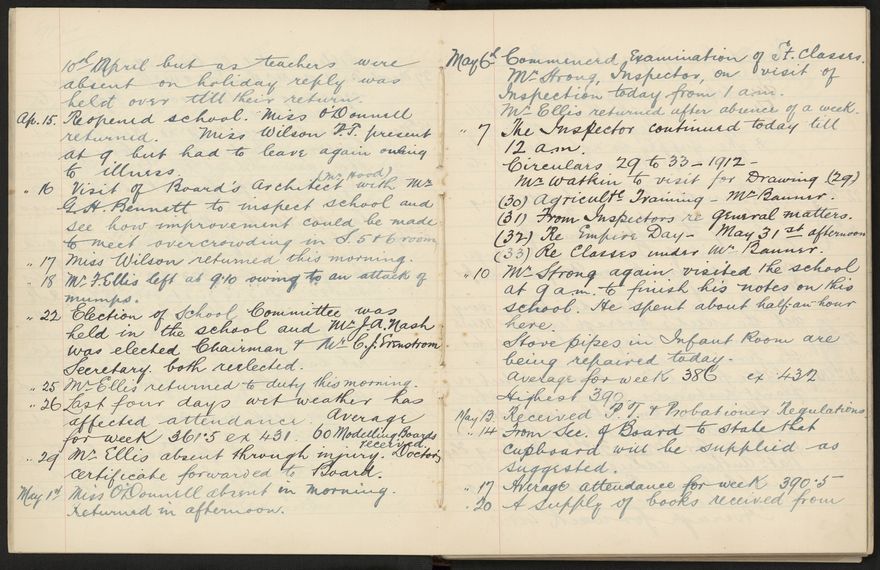 10th April but as teachers were
absent on holiday reply was
held over till their return.
Ap. 15. Reopened school. Miss O'Donnell
returned. Miss Wilson P.T. present
at 9 but had to leave again owing
to illness.
(Mr Hood)
" 16 Visit of Board's Architect with Mr
G.H. Bennett to inspect school and
see how improvement could be made
to meet overcrowding in S. 5 & 6 room
" 17 Miss Wilson returned this morning.
" 18 Mr F. Ellis left at 9.10 owing to an attack of
mumps.
" 22 Election of School Committee was
held in the school and Mr J.A. Nash
was elected Chairman & Mr C.J.
Secretary. both reelected.
" 25 Mr Ellis returned to duty this morning.
" 26 Last four days wet weather has
affected attendance. Average
for week 361.5 ex 431. 60 Modelling Boards
received.
" 29 Mr Ellis absent through injury. Doctor's
certificate forwarded to Board.
May 1st Miss O'Donnell absent in morning.
Returned in afternoon.
May 6th Commenced Examination of Classes.
Mr Strong, Inspector, on visit of
Inspection today from 1 a.m.
Mr Ellis returned after absence of a week.
" 7 The Inspector continued today till
12 a.m.
Circulars 29 to 33 - 1912 -
Mr Watkin to visit for Drawing (29)
(30) Agricultl. Training - Mr Banner.
(31) From Inspectors re general matters.
(32) Re Empire Day - May 31st afternoon
(33) Re Classes under Mr Banner.
" 10 Mr Strong again visited the school
at 9 a.m. to finish his notes on this
school. He spent about half-an-hour
here.
Stove pipes in Infant Room are
being repaired today.
Average for week 386 ex 432
Highest 390
May 13 Received P.T. & Probationer Regulations
" 14 From Sec. of Board to state that
cupboard will be supplied as
suggested.
" 17 Average attendance for week 390.5
" 20 A supply of books received from